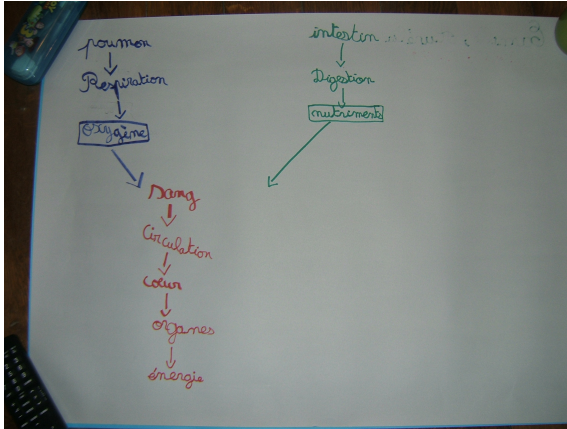 poumon
Respiration
oxygène
intestin
Digestion
nutriments
Sang
Circulation
coeur
organes
énergie